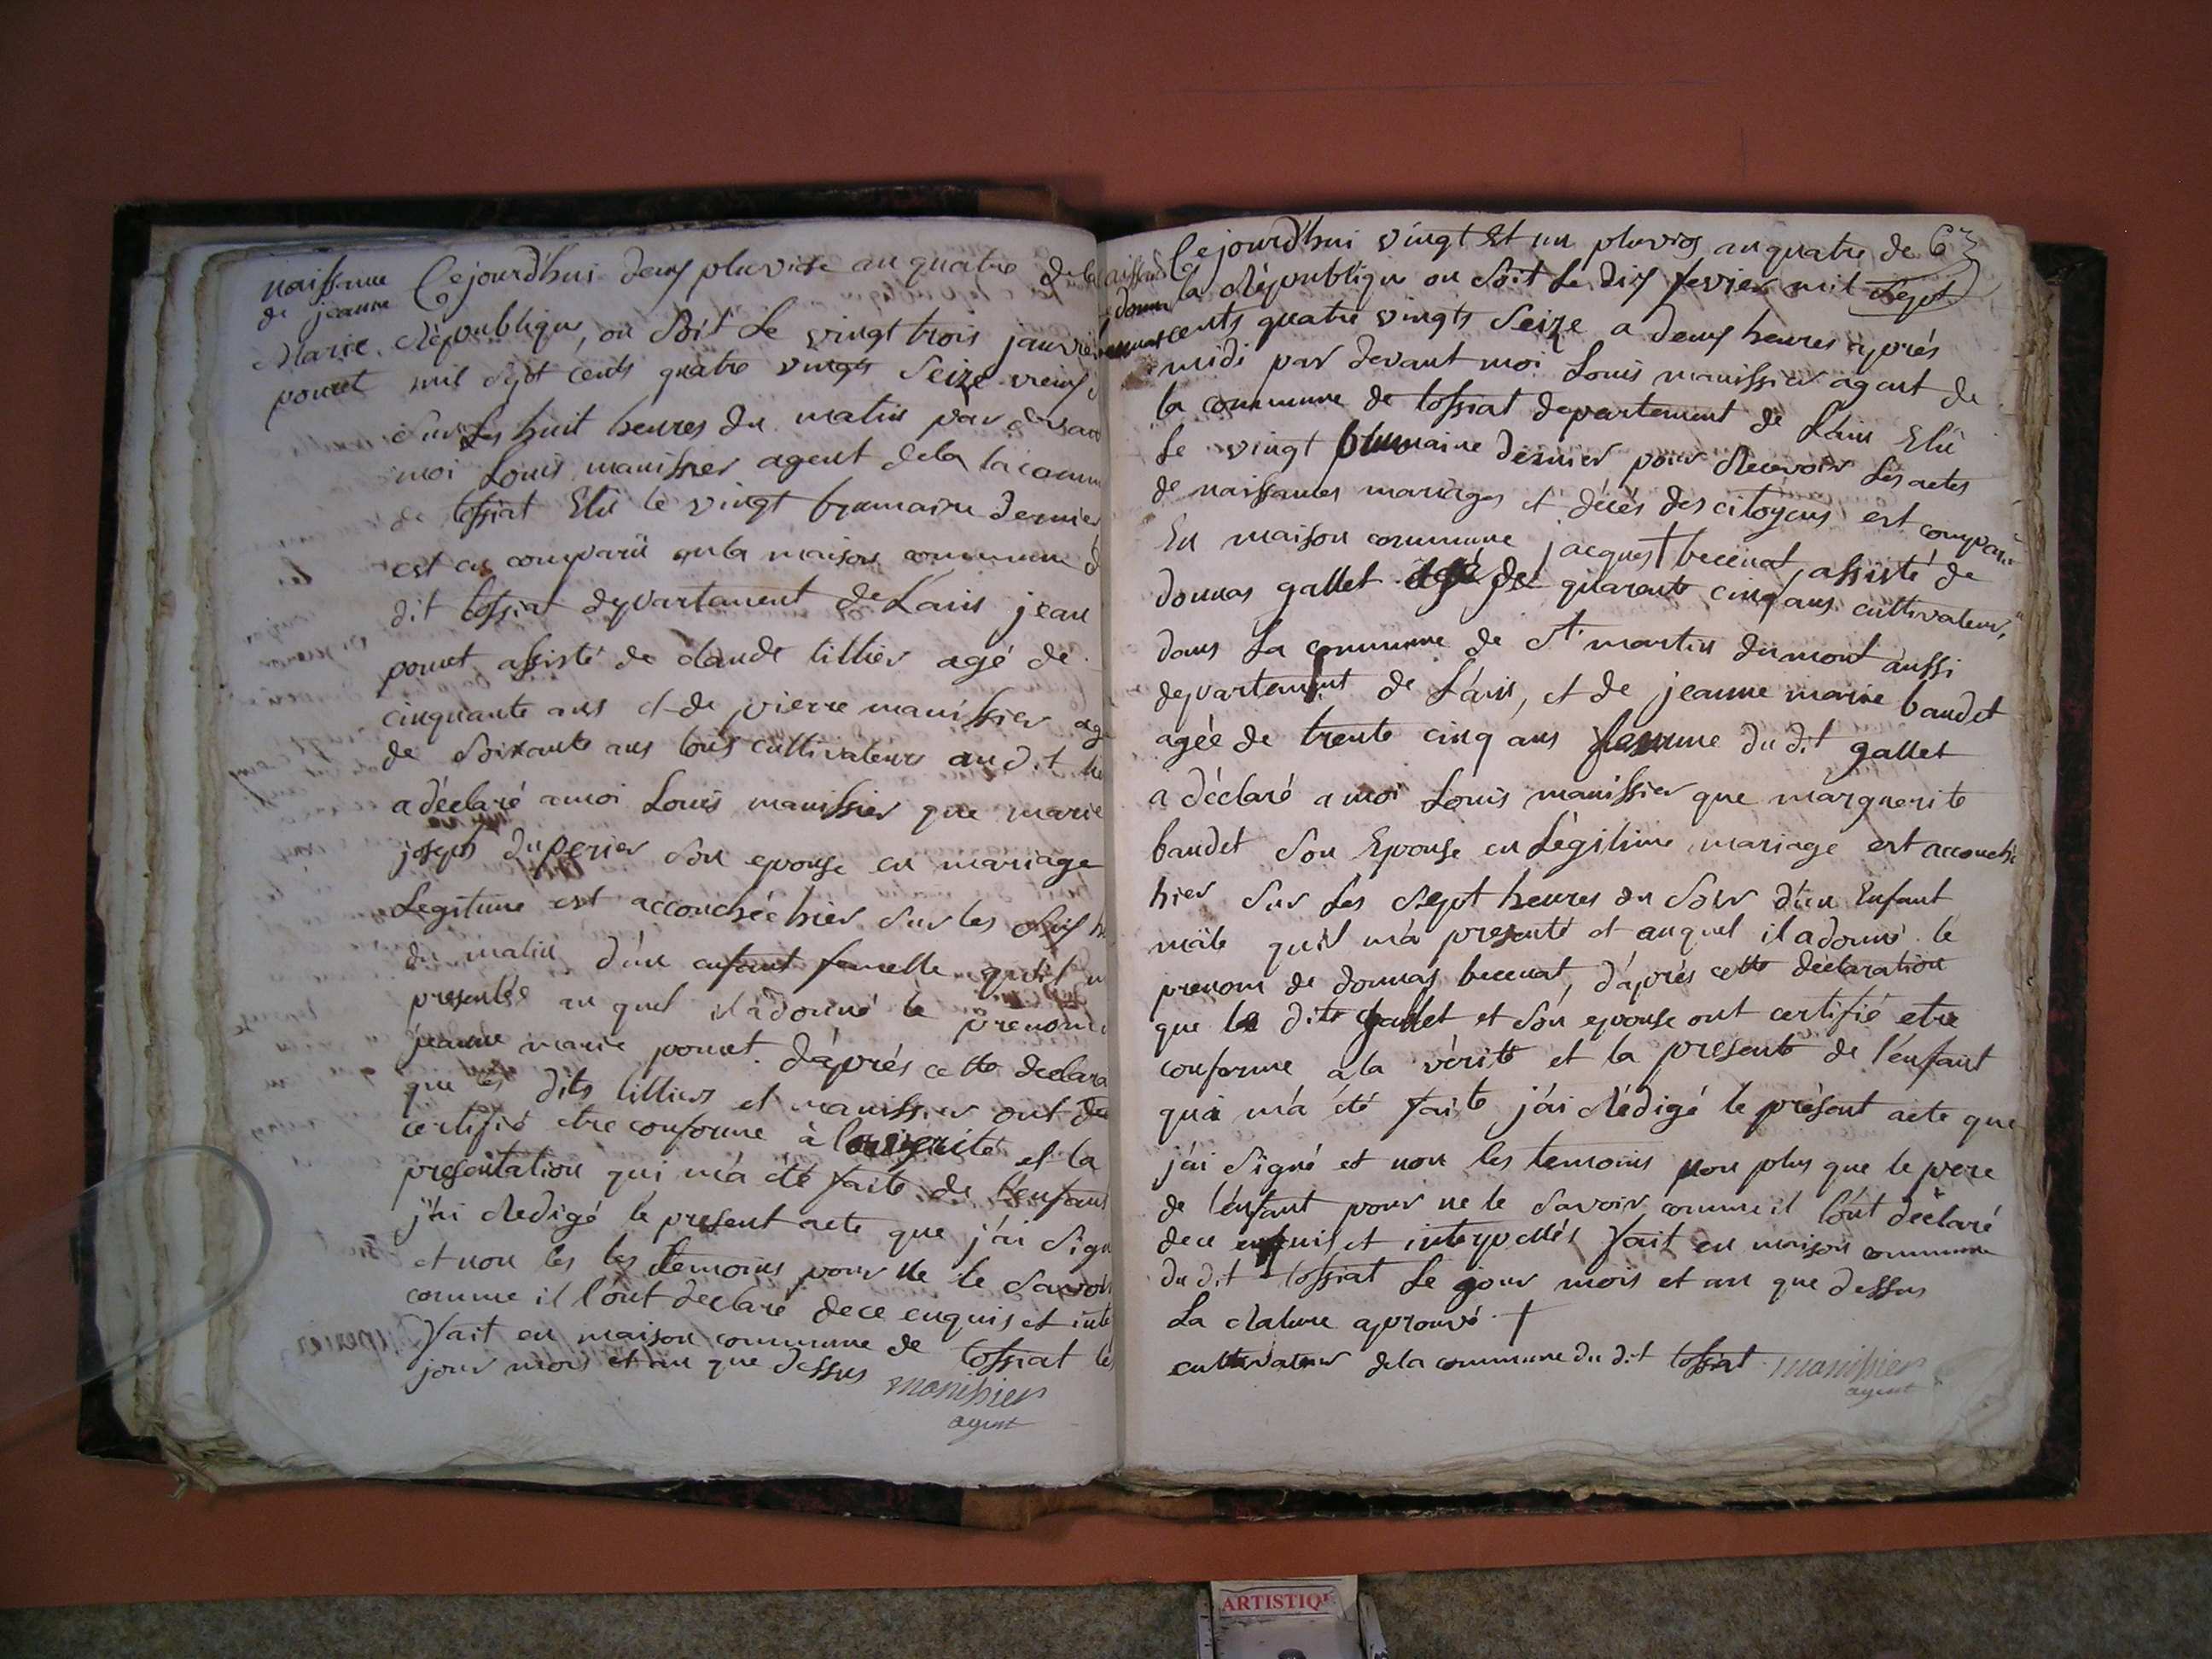 naissance
de jeanne
Marie
ponet
Cejourd'hui deux pluviose an quatre dela
République, ou Soit Le vingt trois janvier
mil Sept cents quatre vingts Seize vieux
Sur Les huit heures du matin par devant
moi Louis manissier agent dela la comm
de tossiat Elu le vingt brumaire dernier
est comparü en la maison commune d
dit tossiat departament de Lain jean
ponet assisté de claude tillier agé de
cinquante ans et de pierre manissier ag
de Soixante ans tous cultivateurs au dit lie
a déclaré a moi Louis manissier que marie
joseph duperier Son epouse en mariage
Legitime est accouchée hier Sur les Six h
du matin d'un enfant femelle qu'il m
presentée au quel il a donné le prenom
jeanne marie ponet. d'aprés cette declara
que les dits tilliers et manissier ont
certifié etre conforme à la verité et la
presentation qui m'a été faite de l'enfant
j'ai Redigé le present acte que j'ai Signé
et non les les temoins pour ne le Savoir
comme il l'ont declaré dece enquis et inte
fait en maison commune de tossiat le
jour mois et an que dessus manissier
agent
Cejourd'hui vingt Et un pluvios an quatre de 63
la République ou Soit Le dix fevrier mil Sept
cents quatre vingts Seize a deux heures aprés
midi par devant moi Louis manissier agent de
la commune de tossiat departement de Lain Elu
Le vingt brumaire dernier pour Recevoir Les actes
de naissances mariages et décés des citoyens est comparu
En maison commune jacques + becenat, assisté de
donnas gallet agé de quarante cinq ans cultivateur,
dans La commune de St martin dumont aussi
departement de Lain, et de jeanne marie baudet
agée de trente cinq ans femme du dit gallet
a déclaré a moi Louis manissier que marguerite
baudet Son Epouse en Légitime mariage est accouchée
hier Sur Les Sept heures du Soir d'un Enfant
mâle qu'il m'a presenté et auquel il a donné le
prenom de donnas becenat, d'aprés cette déclaration
que le dits gallet et Son epouse ont certifié etre
conforme a la vérité et la presente de l'enfant
qui m'a été faite j'ai Rédigé le présent acte que
j'ai Signé et non les temoins non plus que le pere
de l'enfant pour ne le Savoir comme il l'ont déclaré
dece enquis et interpellés fait en maison commune
du dit tossiat Le jour mois et an que dessus
La Rature aprouvé +
cultivateur dela commune du dit tossiat manissier
agent
ARTISTIQUE